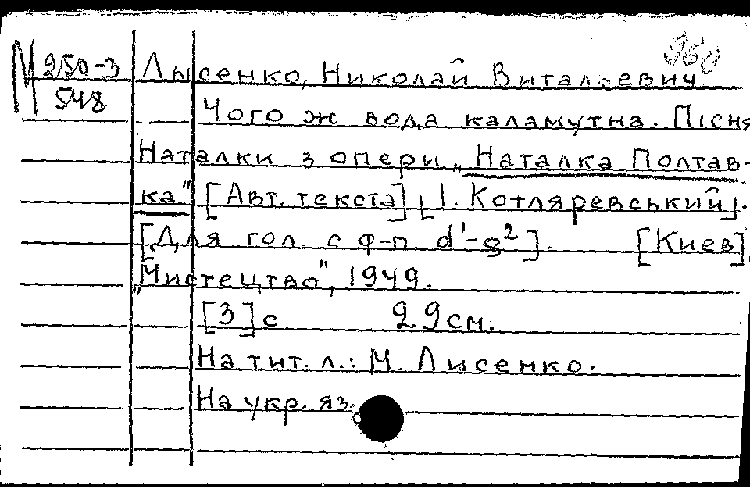 М 250-3
548
960
Лысенко, Николай Витальевич
Чого ж вода каламутна. Пісня
Наталки з опери „Наталка Полтав-
ка" [Авт. текста] [І. Котляревський].
[Для гол. с ф-п d¹-g²]. [Киев],
„Мистецтво", 1949.
[3] с 29 см.
На тит. л.: М. Лисенко.
На укр. яз.